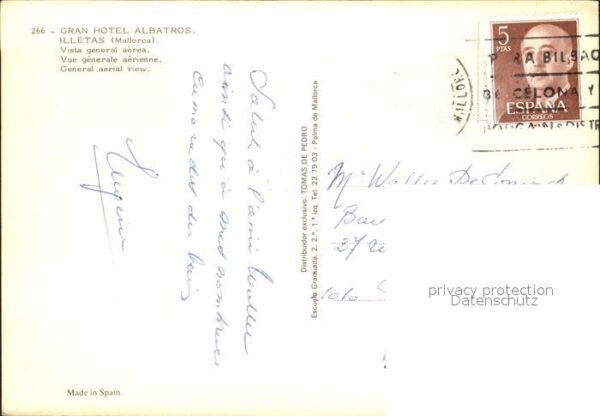 266 - GRAN HOTEL ALBATROS.
ILLETAS (Mallorca).
Vista general aérea.
Vue générale aérienne.
General aerial view.
Salut à l'ami Walter
ainsi qu'à ses nombreux
camarades du
Distribuidor exclusivo: TOMAS DE PEDRO
Escuela Graduada, 2. 2.º, 1.ª izq. Tel. 22 79 03 - Palma de Mallorca
5
PTAS
ESPAÑA
CORREOS
PARA BILBAO
BARCELONA Y
Mr Walter De
27
1010
privacy protection
Datenschutz
Made in Spain.